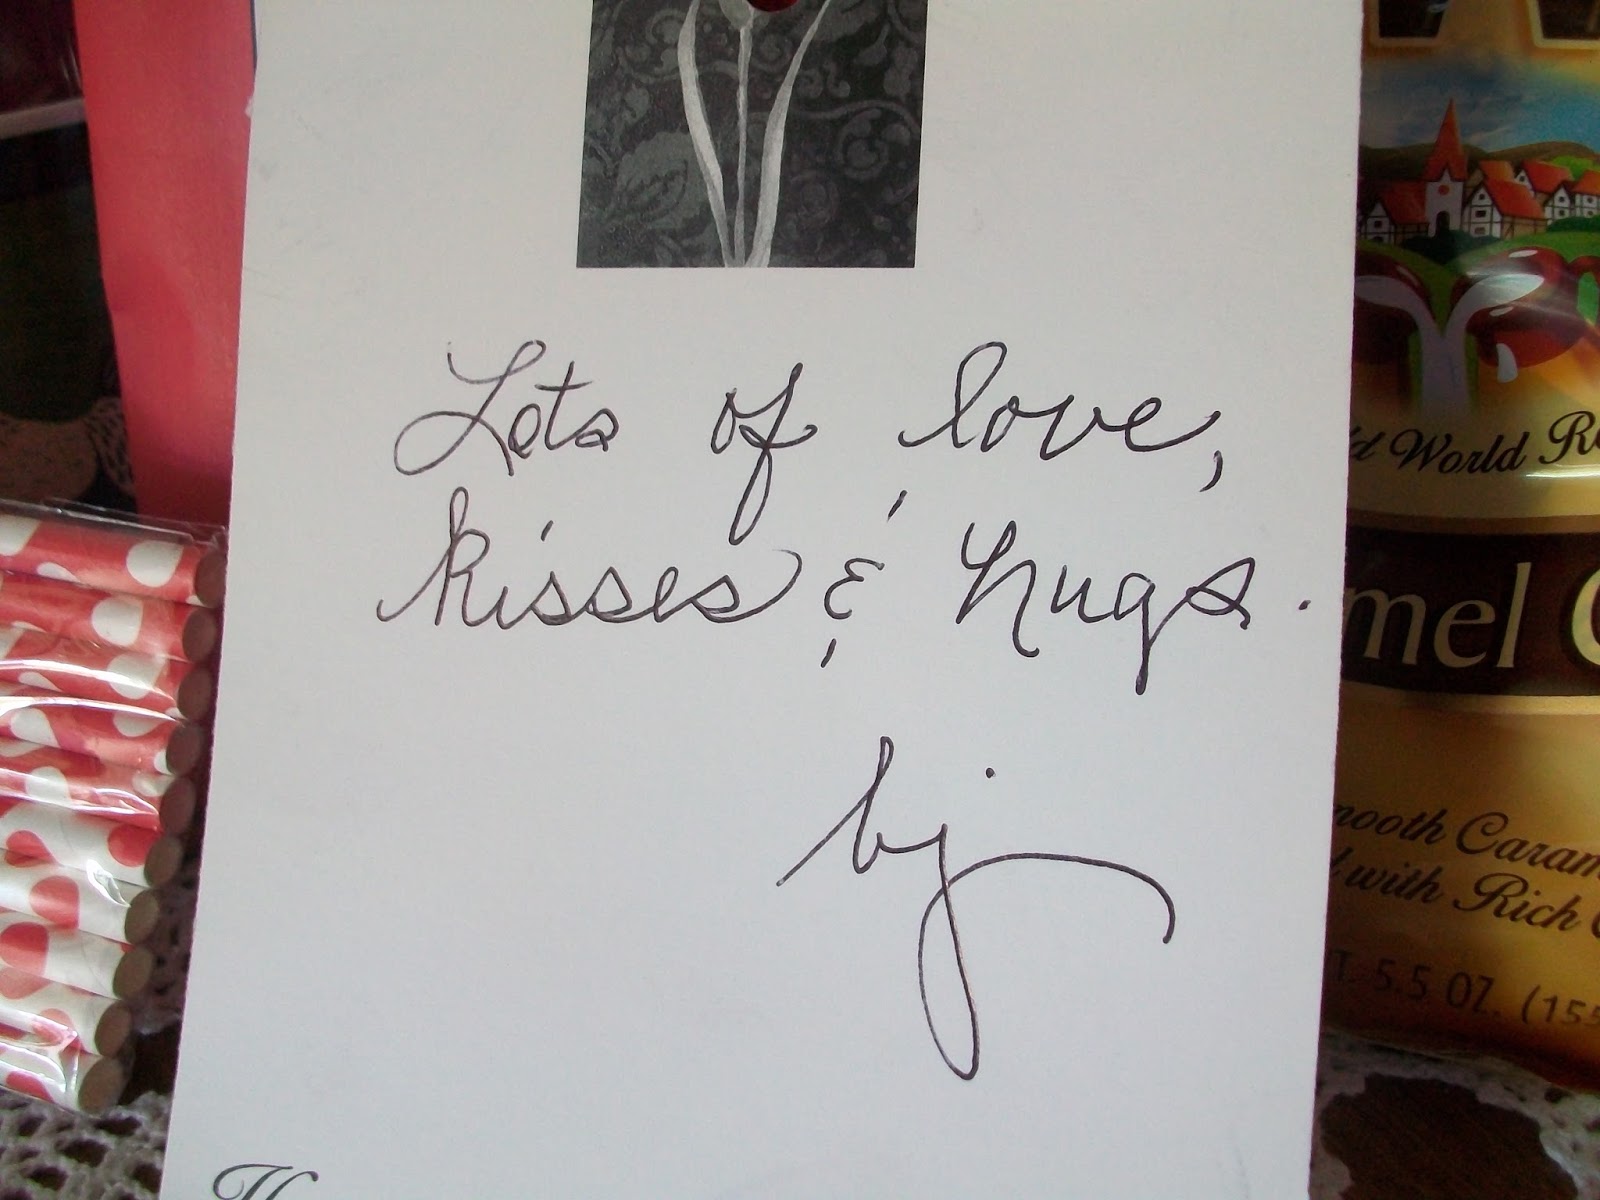 Lots of love,
kisses & hugs.
bj
World
mel
Caram
with Rich
5.5 OZ. (155